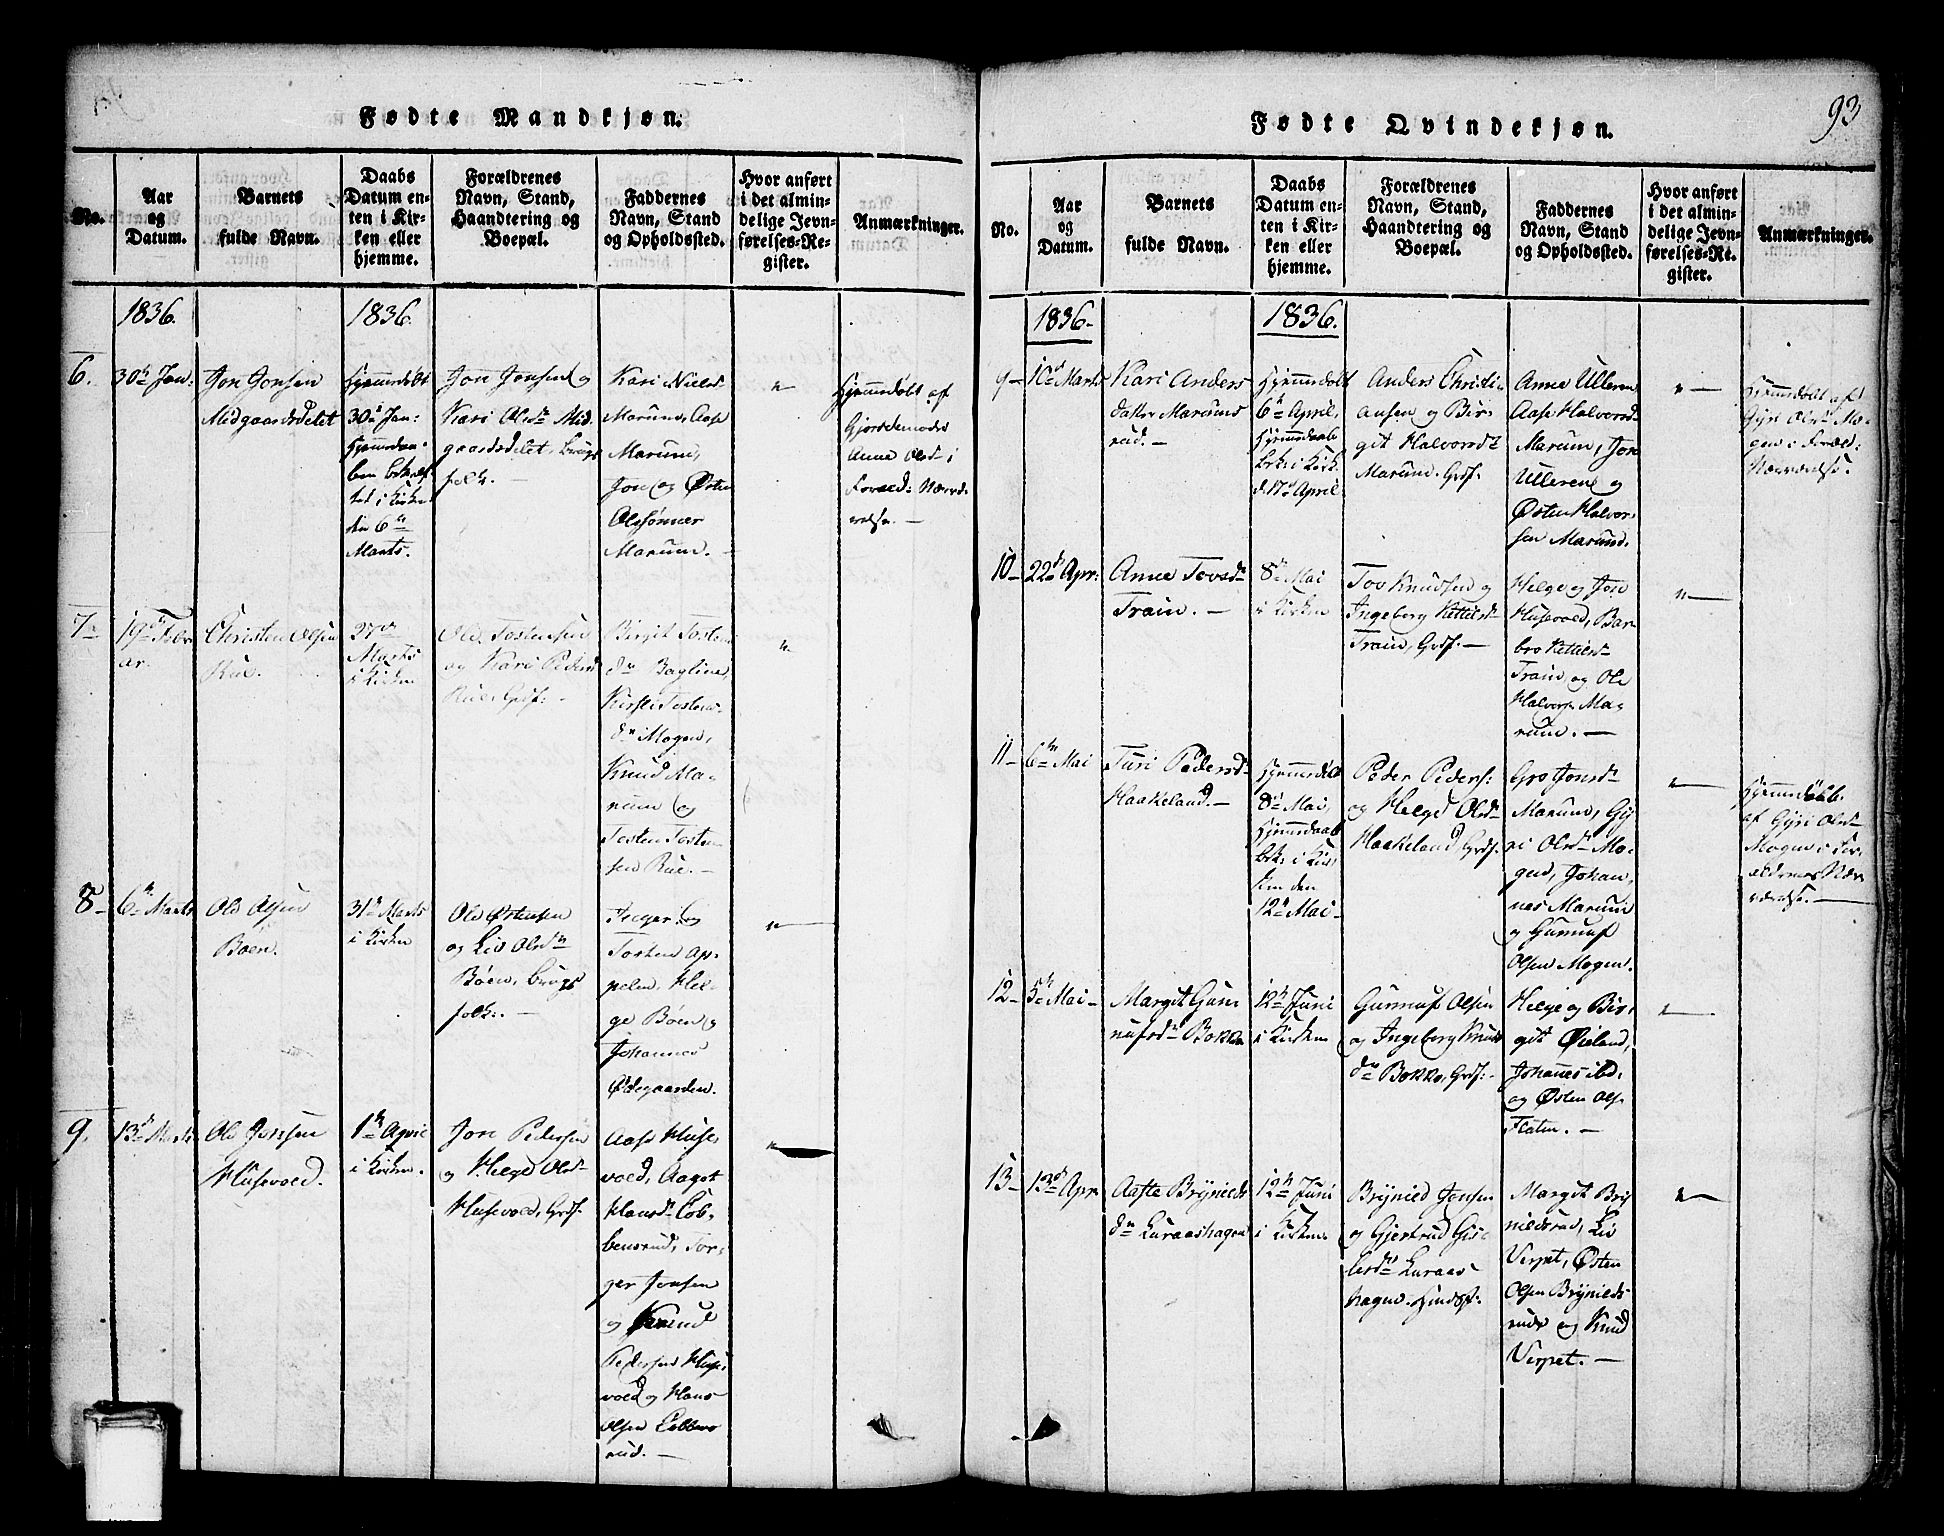 Fødte Mandkjøn.
No.
Aar
og
Datum.
Barnets
fulde Navn.
Daabs
Datum en-
ten i Kir-
ken eller
hjemme.
Forældrenes
Navn, Stand,
Haandtering og
Boepæl.
Faddernes
Navn, Stand
og Opholdssted.
Hvor anført
i det almin-
delige Jevn-
førelses-Re-
gister.
Anmærkninger.
1836.
1836.
6.
30te Jan:
Jon Jonsen
Midgaardsdelet
Hjemmedøbt
30te Jan:
Hjemmedaa-
ben bekræf-
tet i Kirken
den 6te
Marts.
Jon Jonsen og
Kari Olsdr Mid-
gaardsdelet, brugs
folk. —
Kari Niels
Marum, Aase
Marum,
Jon og Østen
Olssønner
Marum. —
"
Hjemmedøbt af
Gjordemoder
Anna Olsdr i
Foræld: Nærvæ-
relse. —
7
19de Febr
ar.
Christen Olsen
Rue.
27de
Marts
i Kirken
Ole Tostensen
og Kari Peders
Rue, Grdf: —
Birgit Tosten
dr Bagline,
Kirsti Tostens-
dr Mogen,
Knud Ma-
rum og
Tosten Tosten-
sen Rue. —
"
8
6te Marts
Ole Olsen
Boen.
31te Marts
i Kirken
Ole Østensen
og Liv Olsdr
Bøen, brugs
folk. —
Ingeri og
Tosten Ap-
pelen, Hel-
ge Bøen og
Johannes
Ødegaarden.
"
9.
13de Marts
Ole Jonsen
Husevold.
1te April
i Kirken.
Jon Pedersen
og Helge Olsdr
Husevold, Grdf.
Aase Huse-
vold, Aagot
Hansdr Cob-
bensrud, Tor-
ger Jonsen
og Knud
Pedersen Huse-
vold og Hans
Olsen Cobbens
rud. —
"
Fødte Qvindekjøn.
93
No.
Aar
og
Datum.
Barnets
fulde Navn.
Daabs
Datum en-
ten i Kir-
ken eller
hjemme.
Forældrenes
Navn, Stand,
Haandtering og
Boepæl.
Faddernes
Navn, Stand
og Opholdssted.
Hvor anført
i det almin-
delige Jevn-
førelses-Re-
gister.
Anmærkninger.
1836.
1836.
9
10de Marts
Kari Anders
datter Marums
rud. —
Hjemmedøbt
6te April,
Hjemmedaab
bek. i Kirk.
d. 17de April
Anders Christi-
ansen og Bir-
git Halvorsdr
Marum. Grdf.
Anne Ulleren
Aase Halvorsdr
Marum, Jon
Ulleren og
Østen Halvor-
sen Marum.
"
Hjemmedøbt af
Gyri Olsdr Mo-
gen i Foræld:
Nærværelse.
10
22de Apr:
Anne Tovsdr
Train. —
8de Mai
i Kirken
Tov Knudsen og
Ingeborg Kettilsdr
Train, Grdf. —
Helge og Jon
Husevold, Bar-
bro Kettilsdr
Train og Ole
Halvors. Ma-
rum. —
"
11
6te Mai
Turi Pedersdr
Haakeland. —
Hjemmedøbt
8de Mai,
Hjemmedaab
bek. i Kir-
ken den
12te Mai
Peder Peders:
og Helge Olsdr
Haakeland, Grdf.
Gro Jonsdr
Marum, Gy-
ri Olsdr Mo-
gen, Johan-
nes Marum
og Gunnuf
Olsen Mogen.
"
Hjemmedøbt
af Gyri Olsdr
Mogen i For-
ældrenes Nær-
værelse.
12
5te Mai
Margit Gun
nufsdr Bokko
12te Juni
i Kirken
Gunnuf Olsen
og Ingeborg Knuds
dr Bokko, Grdf: —
Helge og Bir-
git Øieland,
Johannes ibd.
og Østen Ols.
Flaten. —
"
13
13de Apr.
Aaste Bryniels
dr Luraashagen
12te Juni
i Kirken
Bryniel Jonsen
og Gjertrud Gis-
lesdr Luraas-
hagen. Huusf:
Margit Bry
nielsrud, Liv
Verpet, Østen
Olsen Bryniels
rud og Knud
Verpet. —
"